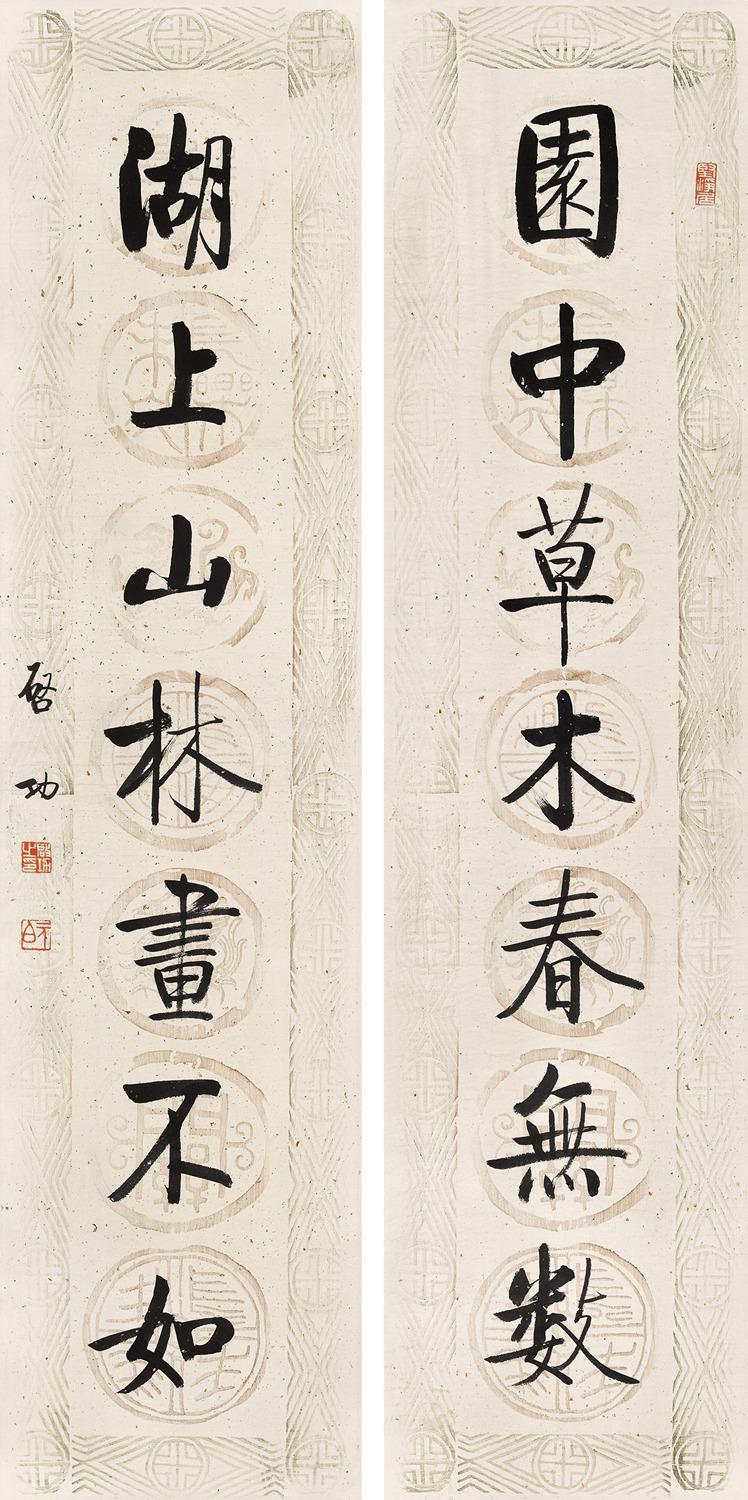 園中草木春無数
湖上山林畫不如
啓功